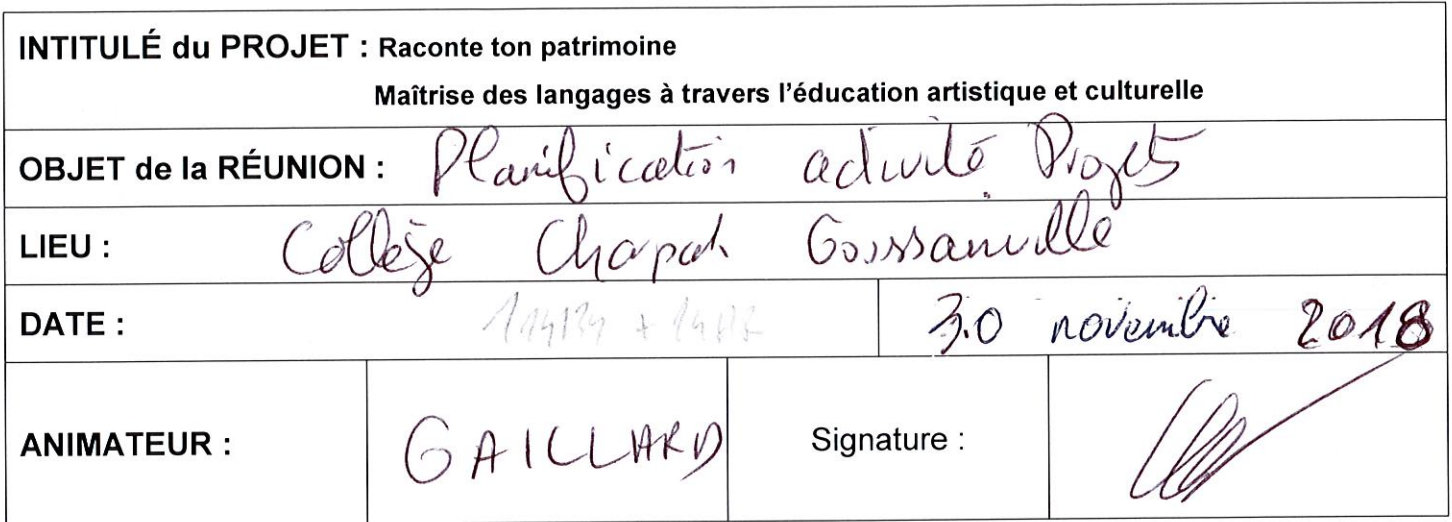 INTITULÉ du PROJET : Raconte ton patrimoine
Maîtrise des langages à travers l'éducation artistique et culturelle
OBJET de la RÉUNION : Planification activité Projets
LIEU : Collège Chapah Goussainville
DATE : 30 novembre 2018
ANIMATEUR : GAILLARD Signature :